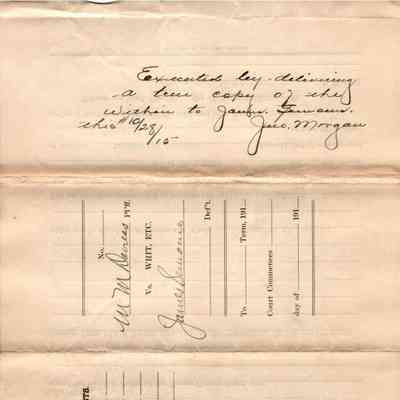 Executed by delivering
a true copy of the
within to James Lemons.
this 10/28/15
Jno. Morgan
No.
M M Davies Pl'ff.
Vs. WRIT, ETC.
James Lemons
Def't.
To Term, 191
Court Commences
day of 191